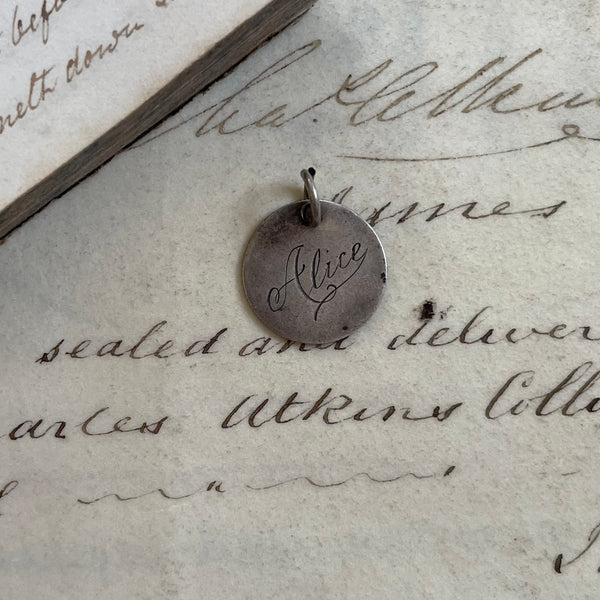 befo
melt down
Cha
James
Alice
sealed and deliver
arles Atkins Colli